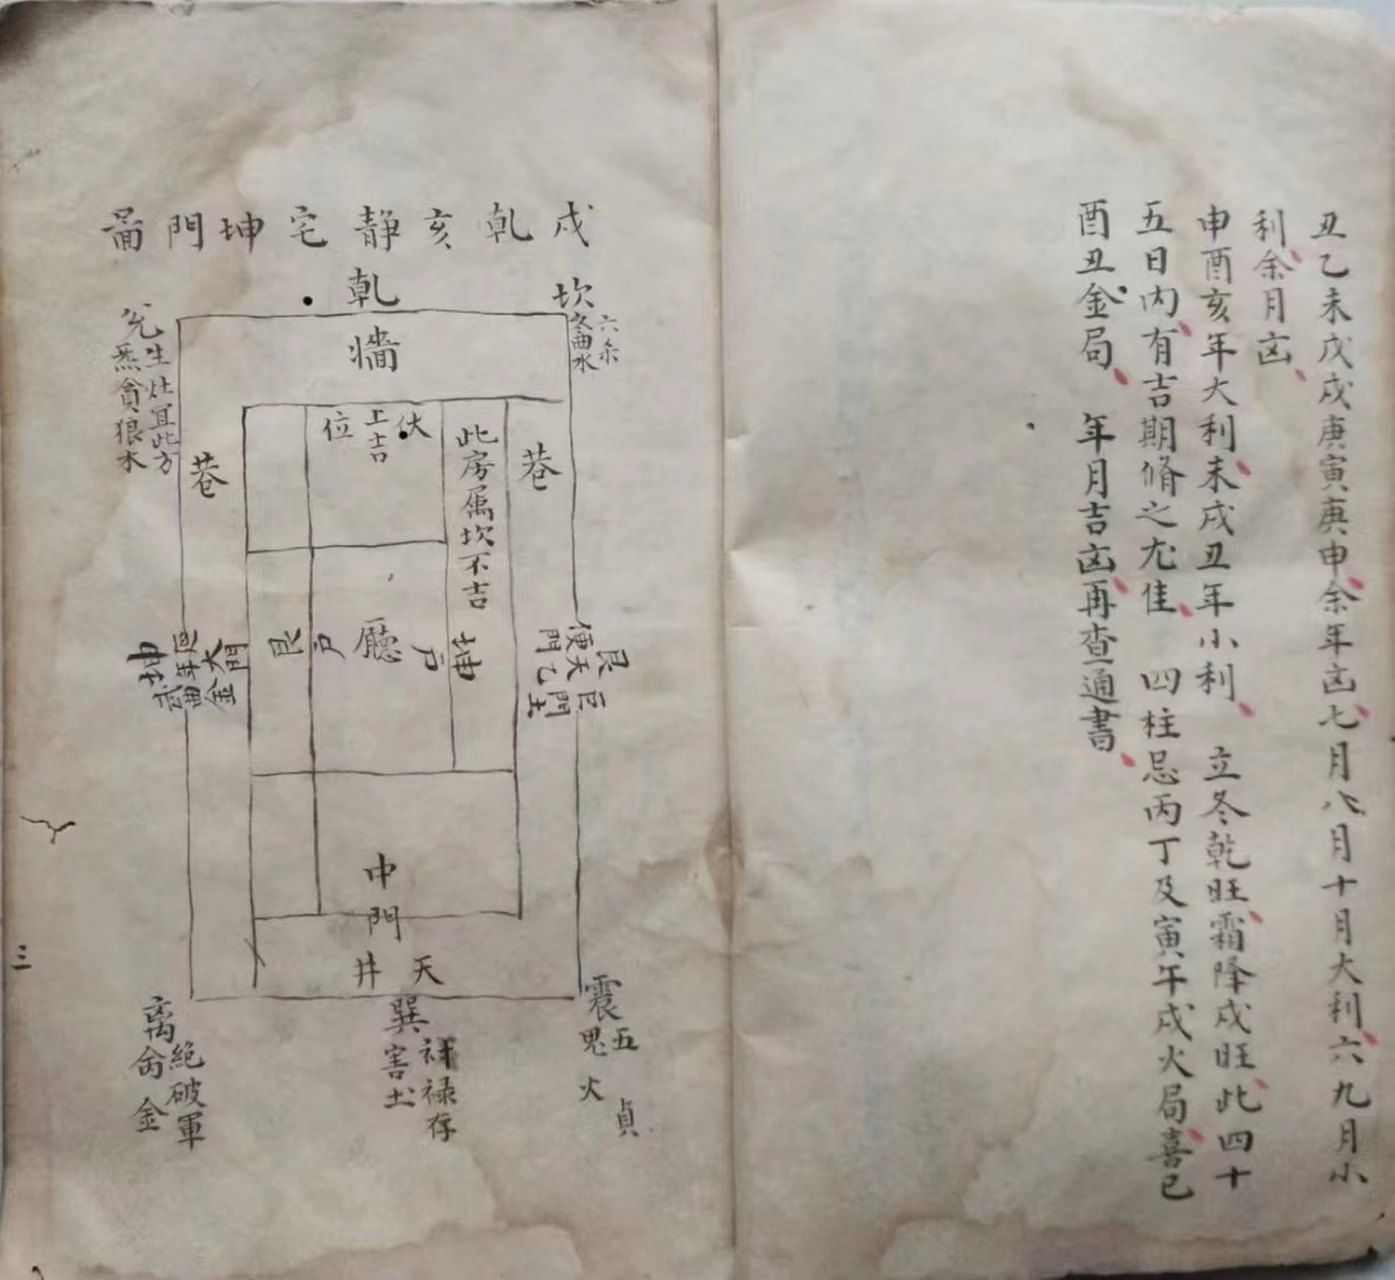 丑乙未戊戌庚寅庚申余年凶七月八月十月大利六九月小
利余月凶
申酉亥年大利未戌丑年小利 立冬乾旺霜降戌旺此四十
五日内有吉期脩之尤佳 四柱忌丙丁及寅午戌火局喜巳
酉丑金局 年月吉凶再查通書
戌乾亥静宅坤門啚
乾
坎
六杀
文曲水
牆
兊
生灶宜此方
炁貪狼水
伏位
上吉
此房属坎不吉
巷
巷
坤
延年
武曲金
大門
艮
户
廳
户
艮
便門
天乙
巨門土
中門
天井
震
五鬼
貞火
巽
禄存
害土
离
絶破軍
命金
三